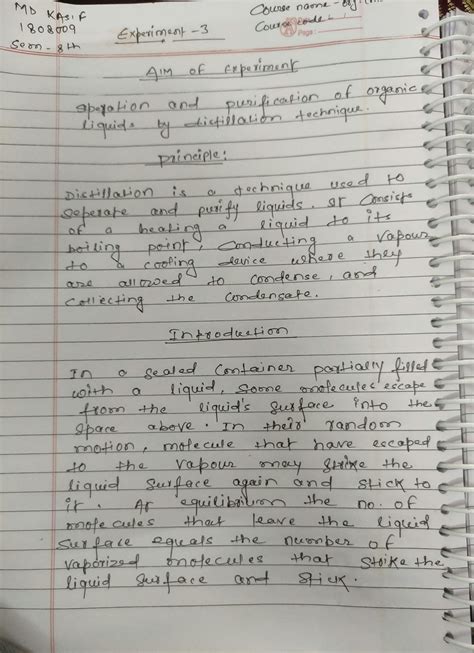 MD KASIF
1808009
Seon - 8th
Course name - org.
Course code -
Page:
Experiment - 3
AIM OF Experiment
Speration and purification of organic
liquids by distillation technique.
Principle:
Distillation is a technique used to
Seperate and purify liquids. It Consists
of a heating a liquid to its
boiling point, Conducting a vapour
to a cooling device where they
are allowed to condense, and
Collecting the Condensate.
Introduction
In a Sealed Container partially filled
with a liquid, Some molecules escape
from the liquid's Surface into the
Space above. In their random
motion, molecule that have escaped
to the vapour may Strike the
liquid Surface again and stick to
it. At equilibrium the no. of
molecules that leave the liquid
Surface equals the number of
vaporized molecules that Strike the
liquid Surface and Stick.